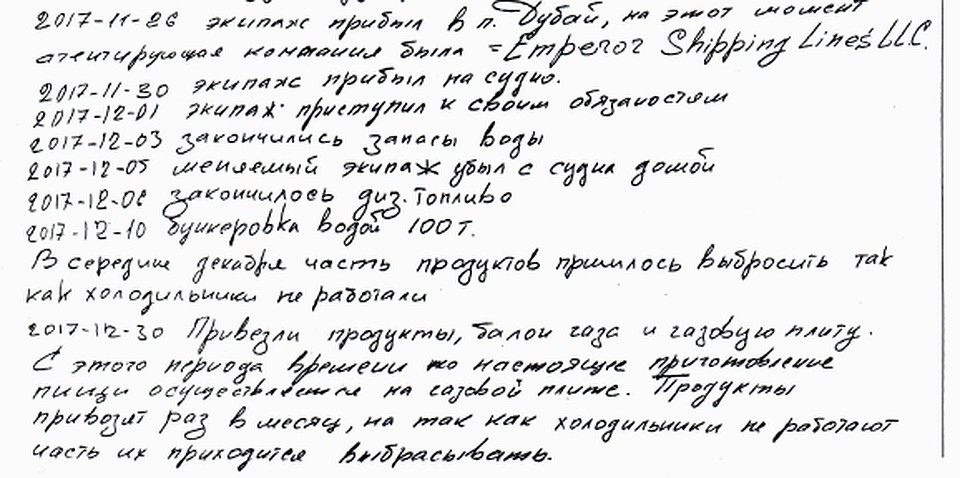 2017-11-26 экипаж прибыл в п. Дубай, на этот момент
агентирующая компания была = Emperor Shipping Lines LLC.
2017-11-30 экипаж прибыл на судно.
2017-12-01 экипаж приступил к своим обязаностям
2017-12-03 закончились запасы воды
2017-12-05 меняемый экипаж убыл с судна домой
2017-12-06 закончилось диз. топливо
2017-12-10 бункеровка водой 100 т.
В середине декабря часть продуктов пришлось выбросить так
как холодильники не работали
2017-12-30 Привезли продукты, балон газа и газовую плиту.
С этого периода времени по настоящее приготовление
пищи осуществляется на газовой плите. Продукты
привозят раз в месяц, на так как холодильники не работают
часть их приходится выбрасывать.